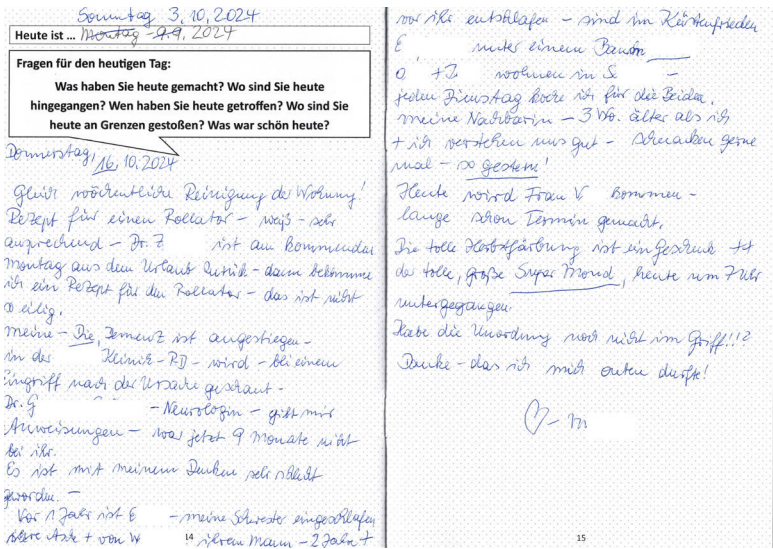 Sonntag 3.10.2024
Heute ist ... Montag - 9.9. 2024
Fragen für den heutigen Tag:
Was haben Sie heute gemacht? Wo sind Sie heute
hingegangen? Wen haben Sie heute getroffen? Wo sind Sie
heute an Grenzen gestoßen? Was war schön heute?
Donnerstag, 16.10.2024
Gleich wöchentliche Reinigung der Wohnung!
Rezept für einen Rollator - weiß - sehr
ansprechend - Dr. Z ist am kommenden
Montag aus dem Urlaub zurück - dann bekomme
ich ein Rezept für den Rollator - das ist nicht
eilig.
Meine - Die, Demenz ist angestiegen -
in der Klinik - RD - wird - bei einem
Eingriff nach der Ursache geschaut -
Dr. G - Neurologin - gibt mir
Anweisungen - war jetzt 9 Monate nicht
bei ihr.
Es ist mit meinem Denken sehr schlecht
geworden. -
Vor 1 Jahr ist E - meine Schwester eingeschlafen
ihre Asche + von W ihrem Mann - 2 Jahre +
14
vor ihr entschlafen - sind im Küstenfrieden
E unter einem Baum
O + Z wohnen in S -
jeden Dienstag koche ich für die Beiden.
meine Nachbarin - 3 Wo. älter als ich
+ ich verstehen uns gut - schnacken gerne
mal - so gestern!
Heute wird Frau V kommen -
lange schon Termin gemacht.
Die tolle Herbstfärbung ist ein Geschenk ++
der tolle, große Super Mond, heute um 7 Uhr
untergegangen.
Habe die Unordnung noch nicht im Griff!!?
Danke - das ich mich outen durfte!
♡ - M
15